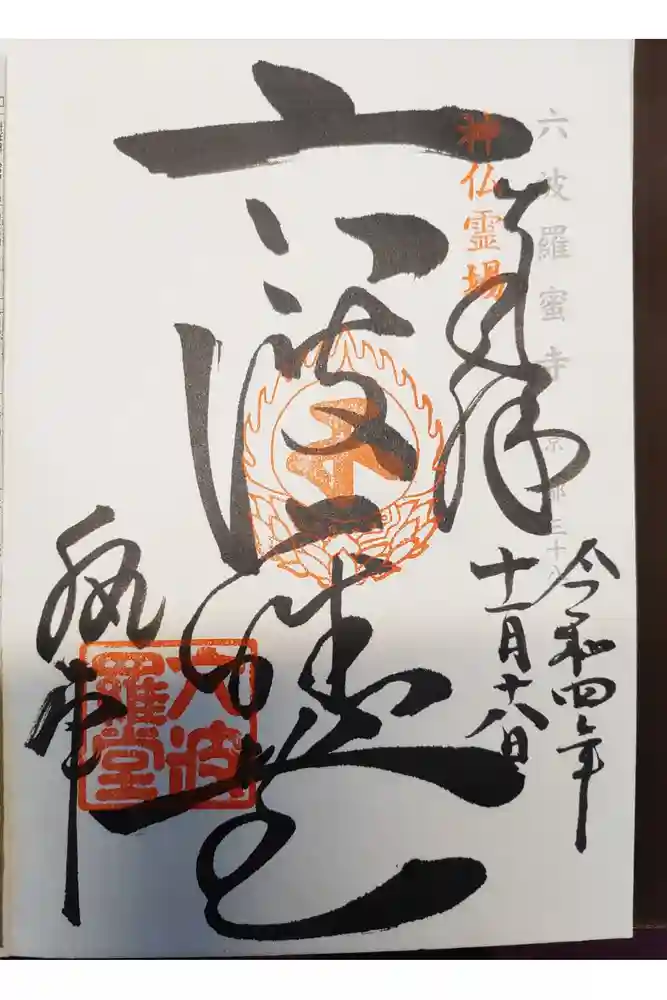 六波羅蜜寺 京都三十八
神仏霊場
奉拝
令和四年
十一月十八日
六波羅堂
執事
六波羅堂